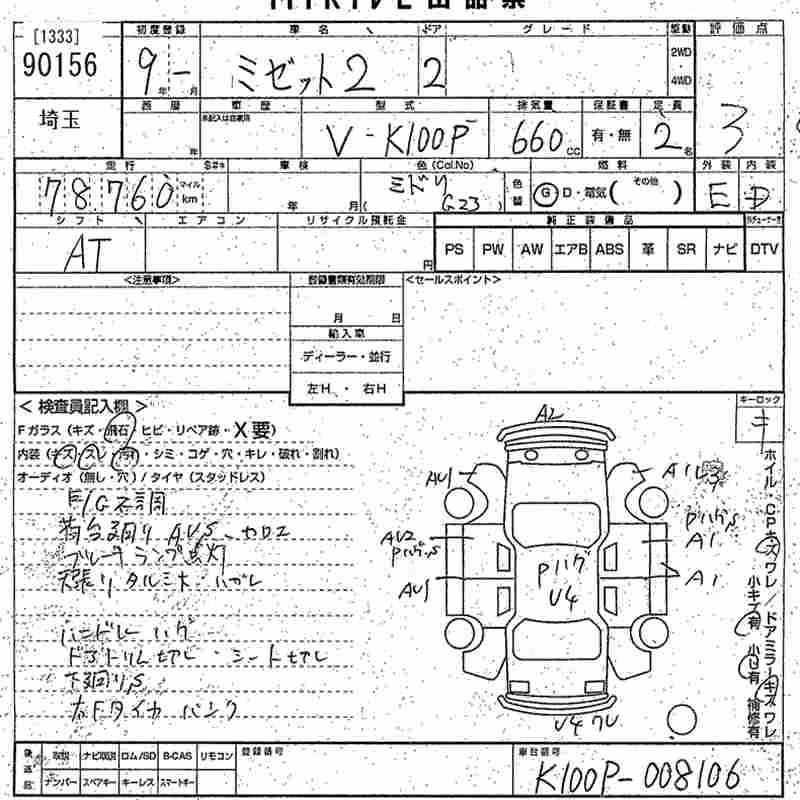 [1333]
90156
埼玉
初度登録
9 年 - 月
車名
ミゼット2
ドア
2
グレード
駆動
2WD
・
4WD
評価点
3
西暦
年
車歴
未記入は自家用
型式
V-K100P
排気量
660 cc
保証書
有・無
定員
2名
走行
78760 マイル km
S#
車検
年 月
色(Col.No)
ミドリ
(G23)
色替
燃料
G D・電気( その他 )
外装
E
内装
D
シフト
AT
エアコン
リサイクル預託金
円
純正装備品
PS PW AW エアB ABS 革 SR ナビ DTV
<注意事項>
登録書類有効期限
月 日
輸入車
ディーラー・並行
左H ・ 右H
<セールスポイント>
キーロック
キ
<検査員記入欄>
Fガラス(キズ・飛石・ヒビ・リペア跡・X要)
内装(キズ・スレ・汚れ・シミ・コゲ・穴・キレ・破れ・割れ)
オーディオ(無し・穴)/タイヤ(スタッドレス)
E/G不調
荷台廻り AUS、カロエ
ブレーキランプ点灯
天張り タルミ大・ハガレ
ハンドル ハゲ
ドアトリム切レ・シート切レ
下廻りS
右Fタイヤ パンク
A2
AU1
A1
AU2
PハゲS
AU1
Pハゲ
U4
PハゲS
A1
A1
U4 ワレ
ホイル・CPキズ・ワレ/ドアミラーキズ・ワレ
小キズ有 小凹有 補修有
後送品
取説 ナビ取説 ロム/SD B-CAS リモコン
ナンバー スペアキー キーレス スマートキー
登録番号
車台番号
K100P-008106